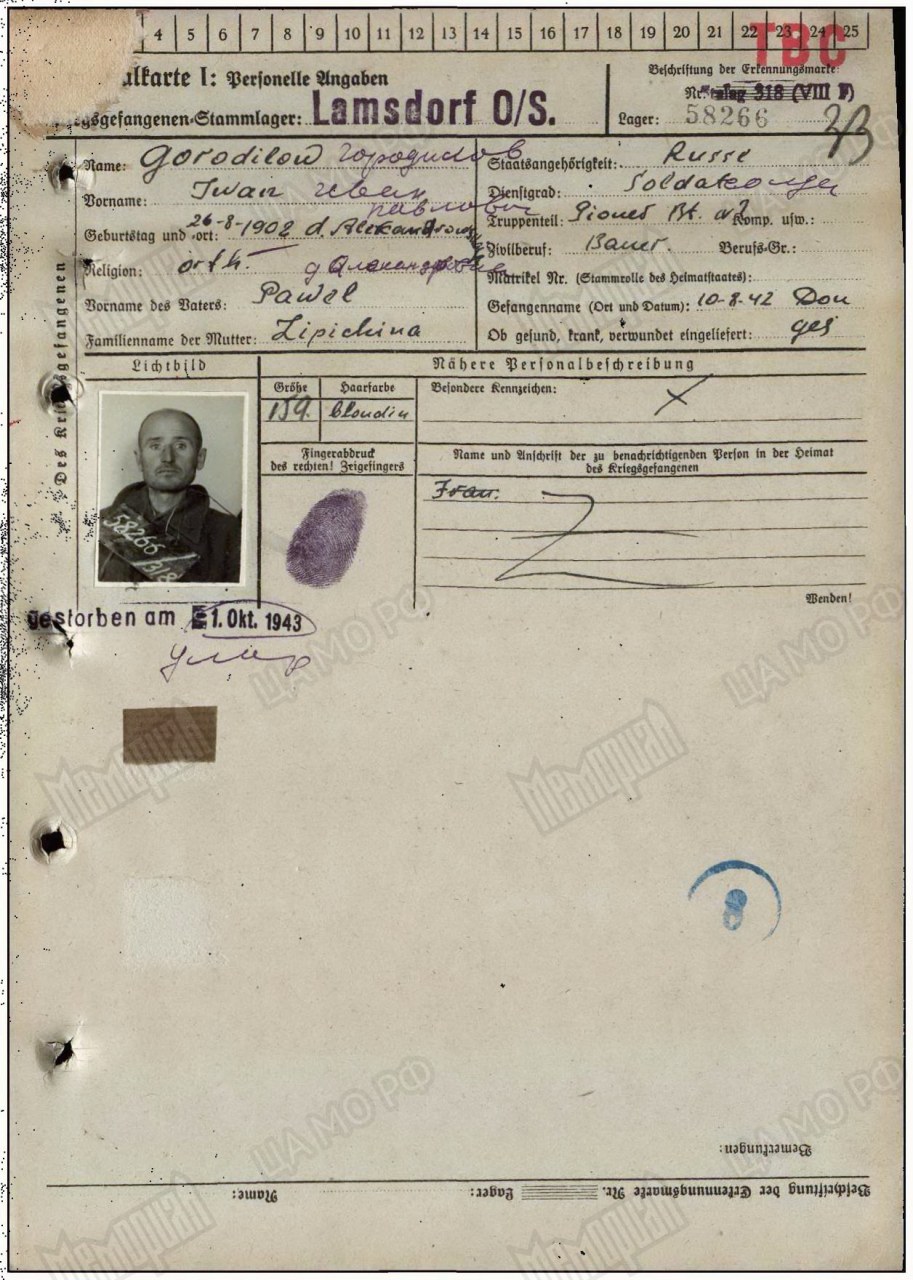 4 5 6 7 8 9 10 11 12 13 14 15 16 17 18 19 20 21 22 23 24 25
TBC
alkarte I: Personelle Angaben
gsgefangenen-Stammlager: Lamsdorf O/S.
Beschriftung der Erkennungsmarke
Nr. Stalag 318 (VIII F)
Lager: 58266
Des Kriegsgefangenen
Name: Gorodilow Городилов
Vorname: Iwan Иван
Павлович
Geburtstag und -ort: 26-8-1902 d. Alexandrowka
Religion: orth.
Vorname des Vaters: Pawel
Familienname der Mutter: Lipichina
Staatsangehörigkeit: Russe
Dienstgrad: Soldat солдат
Truppenteil: Pionei Bt. Komp. usw.:
Zivilberuf: Bauer. Berufs-Gr.:
Matrikel Nr. (Stammrolle des Heimatstaates):
Gefangenname (Ort und Datum): 10-8-42 Don
Ob gesund, krank, verwundet eingeliefert: ges
Lichtbild
Nähere Personalbeschreibung
Größe
Haarfarbe
Besondere Kennzeichen:
159.
blondin
Fingerabdruck
des rechten! Zeigefingers
Name und Anschrift der zu benachrichtigenden Person in der Heimat
des Kriegsgefangenen
58266
318
Wenden!
gestorben am 1. Okt. 1943
умер
Bemerkungen:
Beschriftung der Erkennungsmarke Nr. Lager: Name:
Мемориал
ЦАМО РФ